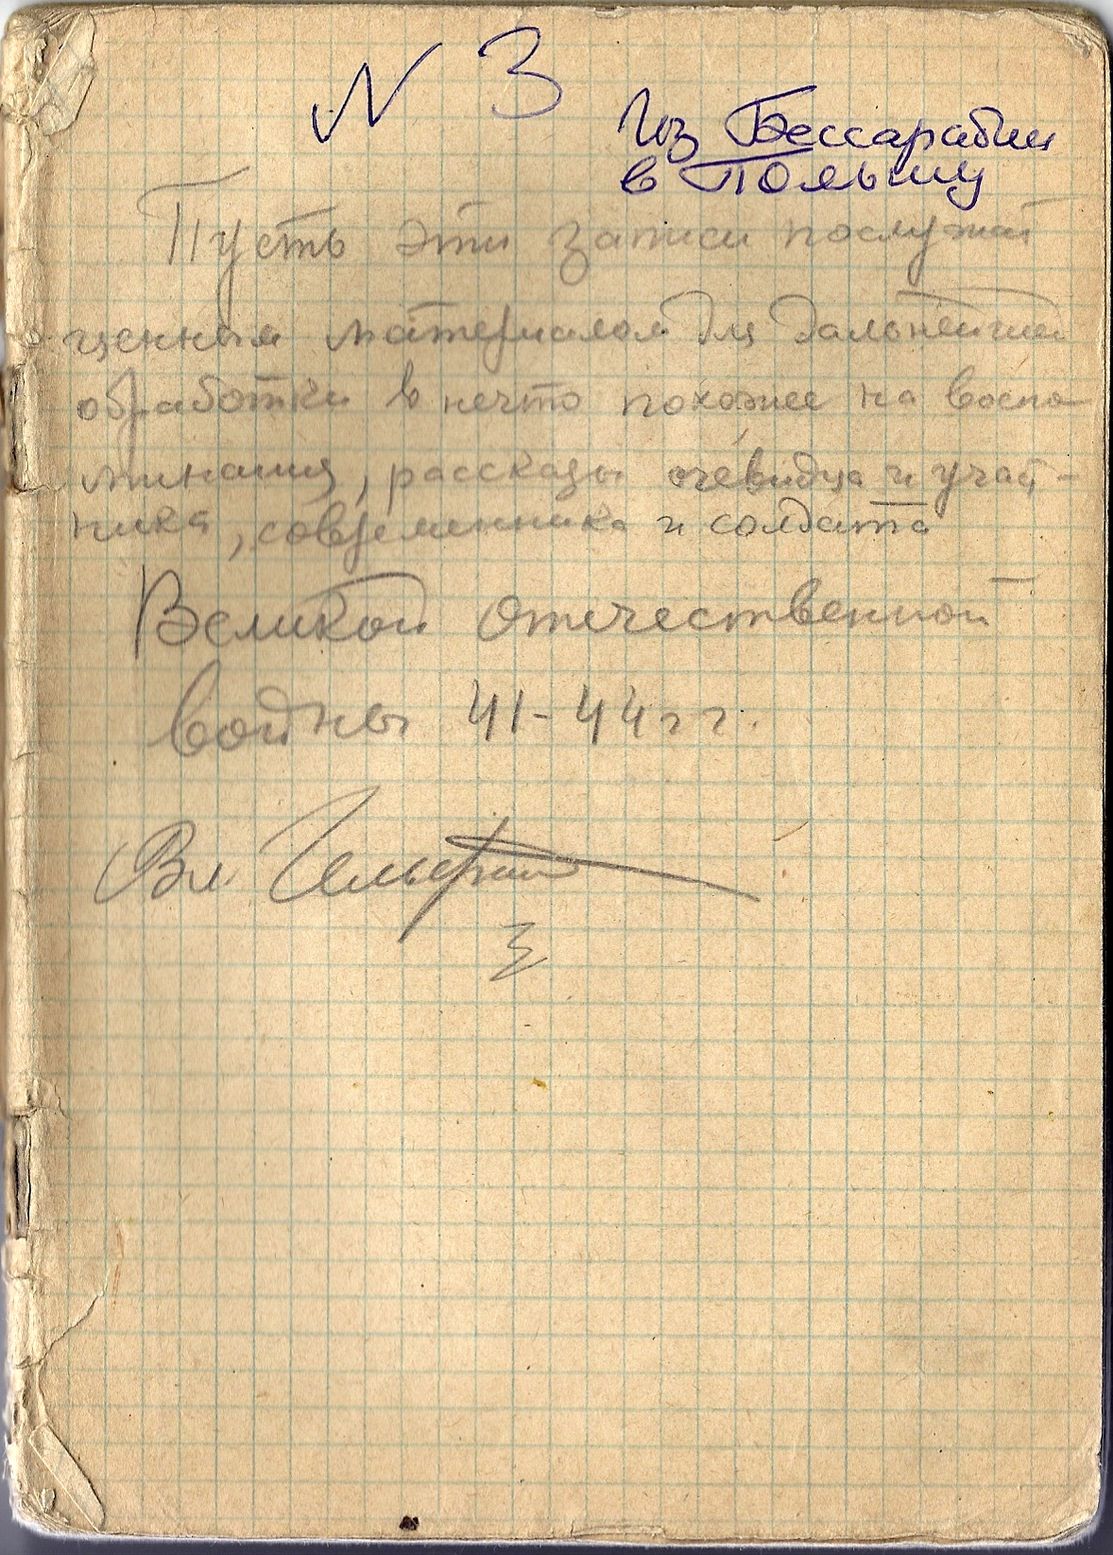 N 3
Из Бессарабии
в Польшу
Пусть эти записи послужат
ценным материалом для дальнейшей
обработки в нечто похожее на воспо-
минания, рассказы очевидца и участ-
ника, современника и солдата
Великой отечественной
войны 41-44 г г.
Вл. Гельфанд